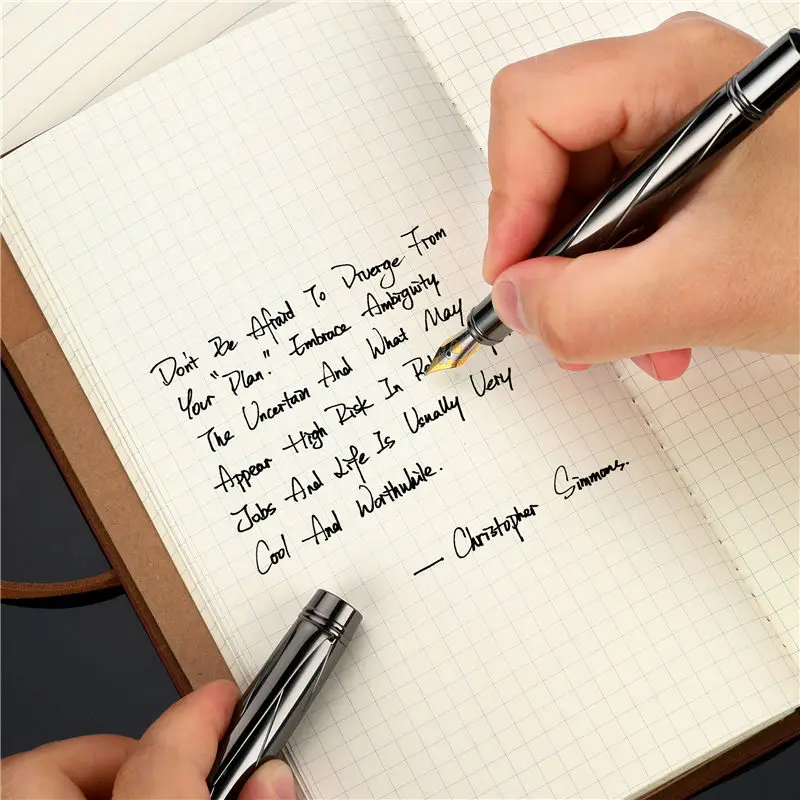 Don't Be Afraid To Diverge From
Your "Plan." Embrace Ambiguity
The Uncertain And What May
Appear High Risk In
Jobs And Life Is Usually Very
Cool And Worthwhile.
— Christopher Simmons.